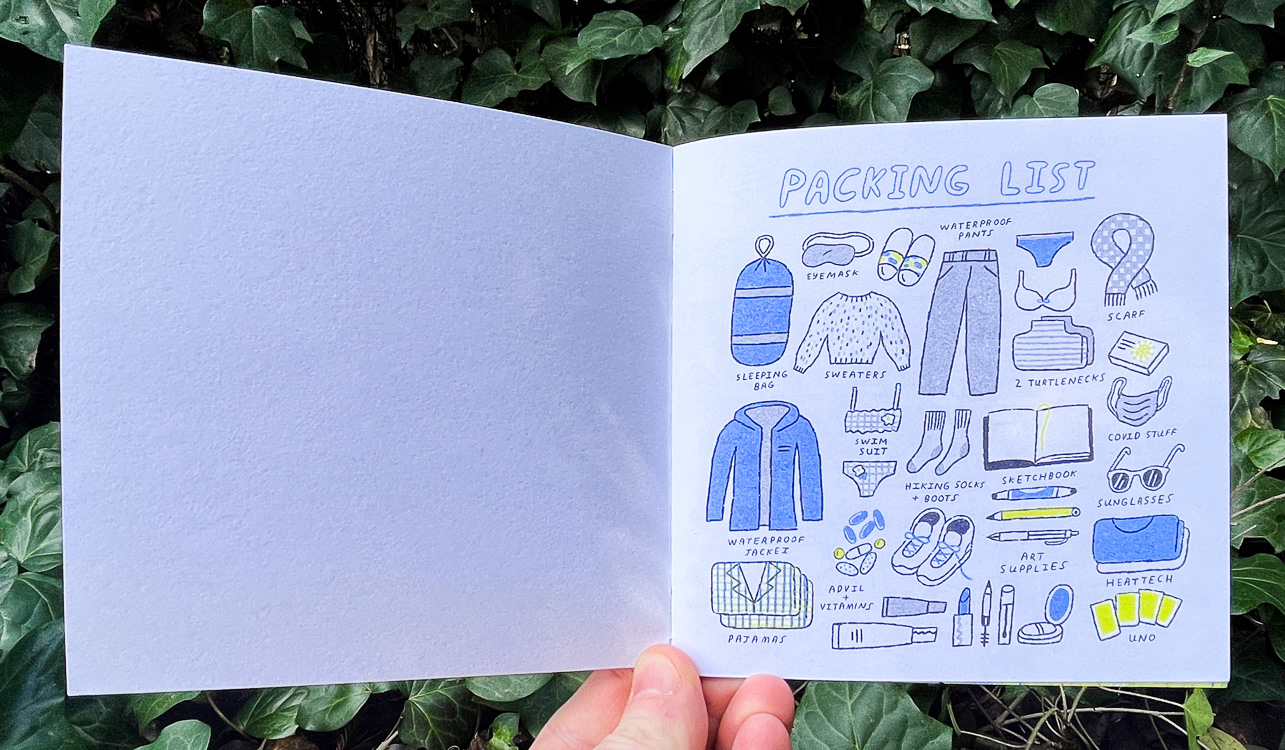 PACKING LIST
WATERPROOF
PANTS
EYEMASK
SCARF
SLEEPING
BAG
SWEATERS
2 TURTLENECKS
COVID STUFF
SWIM
SUIT
HIKING SOCKS
+ BOOTS
SKETCHBOOK
SUNGLASSES
WATERPROOF
JACKET
ART
SUPPLIES
HEATTECH
ADVIL
+
VITAMINS
PAJAMAS
UNO